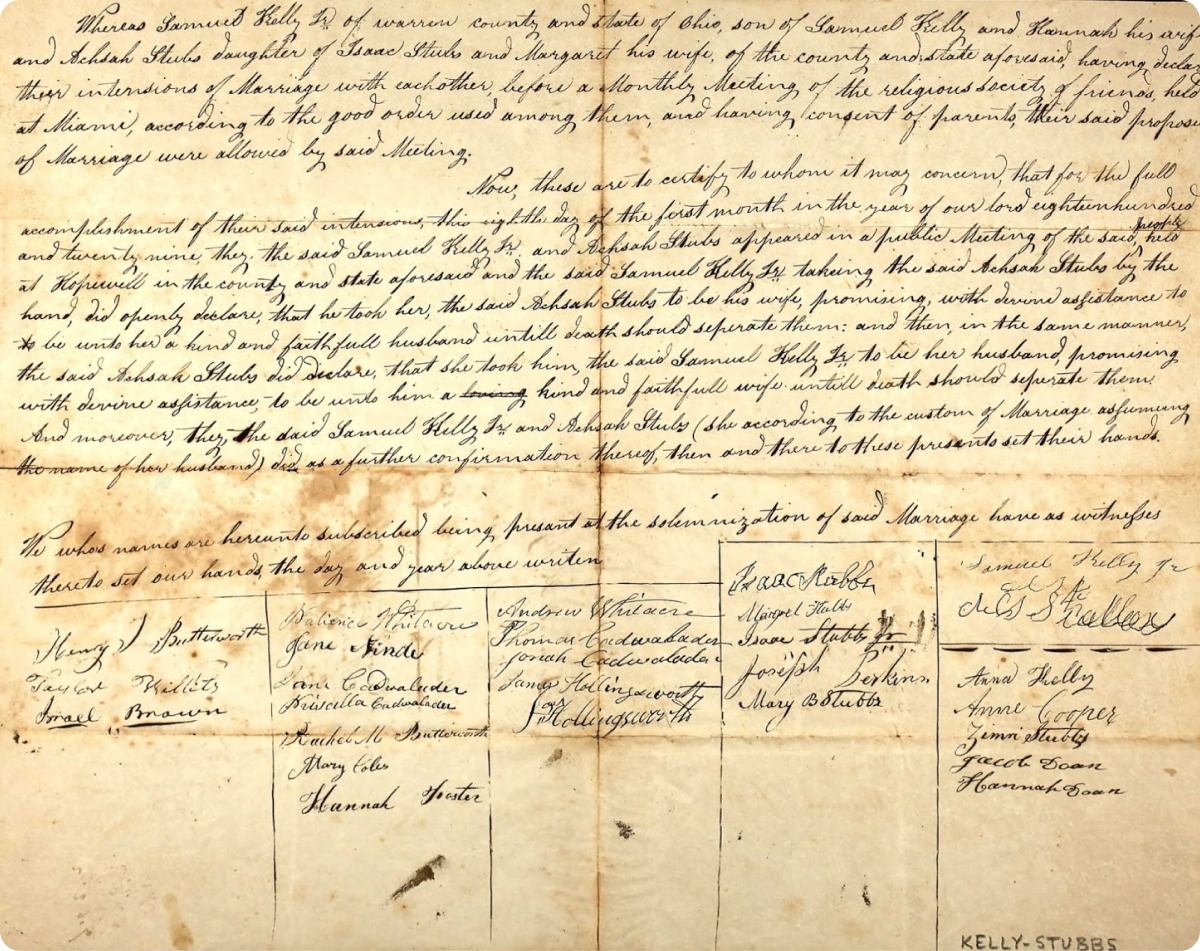 Whereas Samuel Kelly Jr. of warren county and state of Ohio, son of Samuel Kelly and Hannah his wif
and Achsah Stubs daughter of Isaac Stubs and Margaret his wife, of the county and state aforesaid, having declar
their intensions of Marriage with eachother, before a Monthly Meeting of the religious society of friends, held
at Miami, according to the good order used among them, and having consent of parents, their said propose
of Marriage were allowed by said Meeting.
Now, these are to certify to whom it may concern, that for the full
accomplishment of their said intensions, this eighth day of the first month in the year of our lord eighteenhundred
and twenty nine, they, the said Samuel Kelly Jr. and Achsah Stubs appeared in a public Meeting of the said people, held
at Hopewell in the county and state aforesaid and the said Samuel Kelly Jr. takeing the said Achsah Stubs by the
hand, did openly declare, that he took her, the said Achsah Stubs to be his wife, promising, with devine assistance to
to be unto her a kind and faithfull husband untill death should seperate them: and then, in the same manner,
the said Achsah Stubs did declare, that she took him, the said Samuel Kelly Jr. to be her husband, promising
with devine assistance, to be unto him a loving kind and faithfull wife untill death should seperate them.
And moreover, they, the daid Samuel Kelly Jr. and Achsah Stubs (she according to the custom of Marriage assumeing
the name of her husband) did as a further confirmation thereof, then and there to these presents set their hands.
We whos names are hereunto subscribed being presant at the solemnization of said Marriage have as witnesses
thereto set our hands, the day and year above writen
Henry Butterworth
Taylor
Israel Brown
Patience Whitacre
Jane Ninde
Jane Cadwalader
Priscilla Cadwalader
Rachel M Butterworth
Mary Coles
Hannah Foster
Andrew Whitacre
Thomas Cadwalader
Jonah Cadwalader
James Hollingsworth
Hollingsworth
Isaac Stubbs
Margret Stubbs
Isaac Stubbs Jr
Joseph Perkins
Mary B Stubbs
Samuel Kelly Jr
Anna Kelly
Anne Cooper
Zimri Stubbs
Jacob Doan
Hannah Doan
KELLY-STUBBS